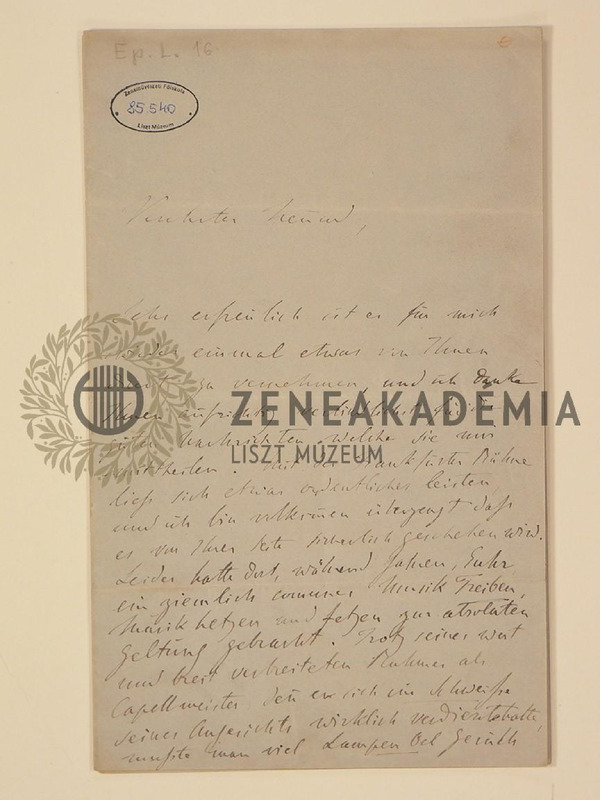 Ep. L. 16.
Zeneművészeti Főiskola
85.540
Liszt Múzeum
Verehrter Freund,
Sehr erfreulich ist es für mich
wieder einmal etwas von Ihnen
zu vernehmen, und ich danke
Ihnen aufrichtig
guten Nachrichten, welche Sie mir
mittheilen. Mit der Frankfurter Bühne
ließ sich etwas ordentliches leisten
und ich bin vollkommen überzeugt daß
es von Ihrer Seite sicherlich geschehen wird.
Leider hatte dort, während Jahren, Guhr
ein ziemlich communes Musik Treiben,
Musik hetzen und fetzen zur absoluten
Geltung gebracht. Trotz seines weit
und breit verbreiteten Ruhmes als
Capellmeister den er sich im Schweiße
seines Angesichts wirklich verdient hatte,
mußte man viel Lampen Oel Geruch
ZENEAKADÉMIA
LISZT MÚZEUM